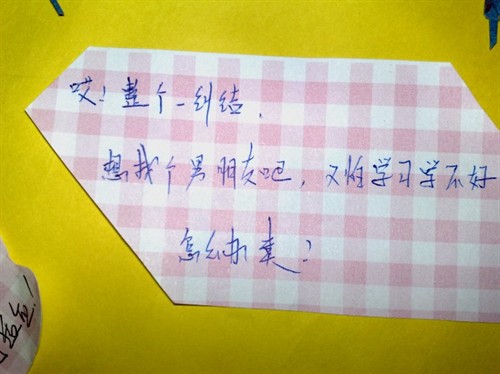 哎！整个一纠结，
想找个男朋友吧，又怕学习学不好
怎么办类？